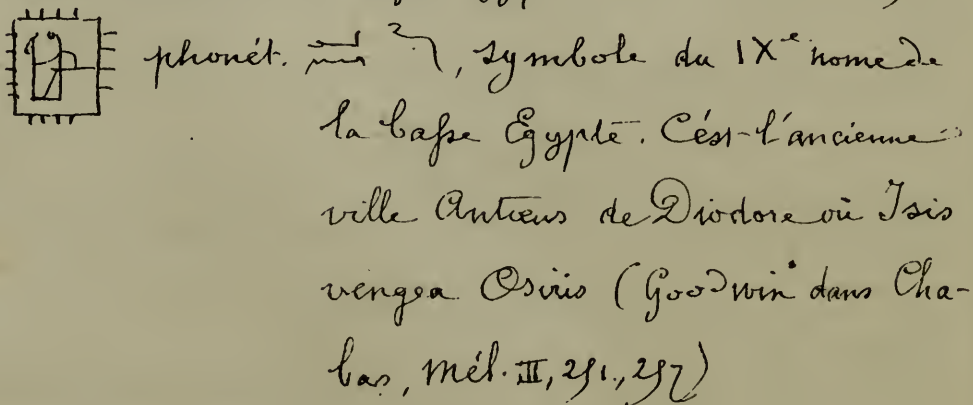 phonét. , symbole du IX^e nome de
la basse Egypte. C'est l'ancienne
ville Antæus de Diodore où Isis
vengea Osiris (Goodwin dans Cha-
bas, Mél. III, 251., 257)